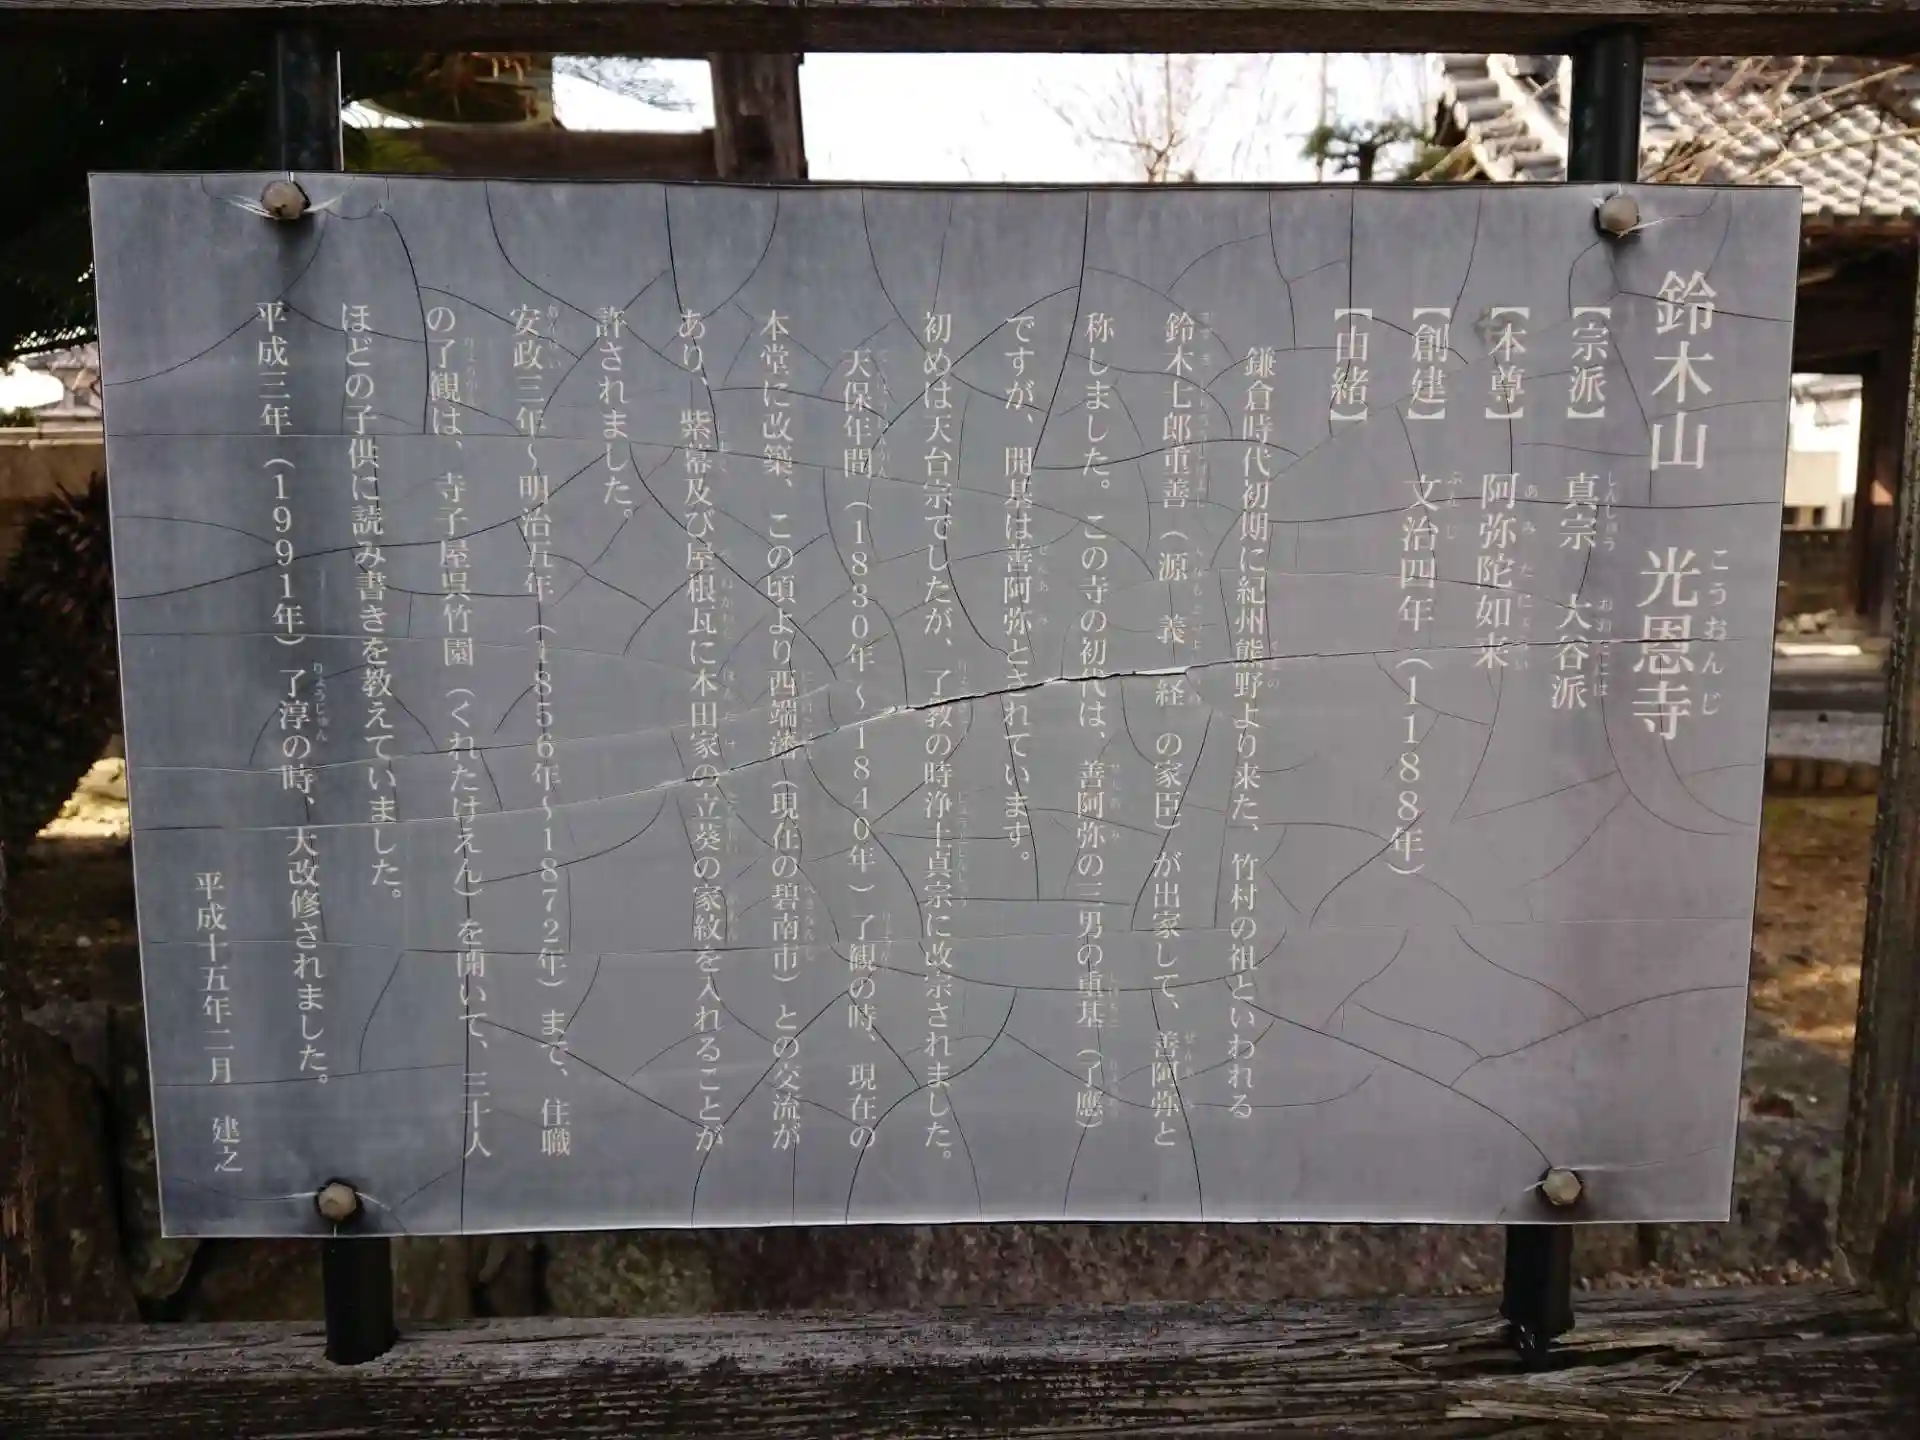 鈴木山　光恩寺
【宗派】　真宗　大谷派
【本尊】　阿弥陀如来
【創建】　文治四年（1188年）
【由緒】
鎌倉時代初期に紀州熊野より来た、竹村の祖といわれる
鈴木七郎重善（源　義　経　の家臣）が出家して、善阿弥と
称しました。この寺の初代は、善阿弥の三男の重基（了應）
ですが、開基は善阿弥とされています。
初めは天台宗でしたが、了教の時浄土真宗に改宗されました。
天保年間（1830年～1840年）了観の時、現在の
本堂に改築、この頃より西端藩（現在の碧南市）との交流が
あり、紫幕及び屋根瓦に本田家の立葵の家紋を入れることが
許されました。
安政三年～明治五年（1856年～1872年）まで、住職
の了観は、寺子屋呉竹園（くれたけえん）を開いて、三十人
ほどの子供に読み書きを教えていました。
平成三年（1991年）了淳の時、大改修されました。
平成十五年二月　建之